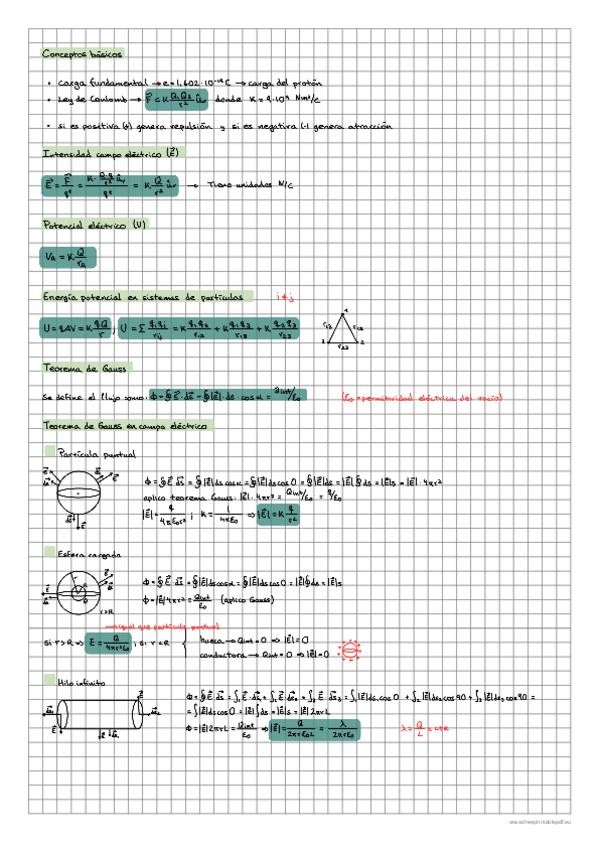 Conceptos básicos
• carga fundamental → e = 1,602 · 10⁻¹⁹ C → carga del protón
• Ley de Coulomb → F⃗ = K Q₁Q₂/r² ûᵣ donde K = 9·10⁹ Nm²/C
• si es positiva (+) genera repulsión y si es negativa (-) genera atracción
Intensidad campo eléctrico (E⃗)
E⃗ = F⃗/q = (K · Q·q/r² ûᵣ)/q = K Q/r² ûᵣ → Tiene unidades N/C
Potencial eléctrico (U)
V_A = K Q/r_A
Energía potencial en sistemas de partículas i ≠ j
U = qΔV = K qQ/r ; U = Σ qᵢqⱼ/rᵢⱼ = K q₁q₂/r₁,₂ + K q₁q₃/r₁,₃ + K q₂q₃/r₂,₃
Teorema de Gauss
Se define el flujo como: Φ = ∮ E⃗ · ds⃗ = ∮ |E⃗| · ds · cos α = Qint/ε₀ (ε₀ = permitividad eléctrica del vacío)
Teorema de Gauss en campo eléctrico
Partícula puntual
Φ = ∮ E⃗ ds⃗ = ∮ |E⃗| ds cos α = ∮ |E⃗| ds cos 0 = ∮ |E⃗| ds = |E⃗| ∮ ds = |E⃗| s = |E⃗| · 4πr²
aplico teorema Gauss: |E⃗| · 4πr² = Qint/ε₀ = q/ε₀
|E⃗| = q/4πε₀r² ; K = 1/4πε₀ ⇒ |E⃗| = K q/r²
Esfera cargada
Φ = ∮ E⃗ · ds⃗ = ∮ |E⃗| ds cos α = ∮ |E⃗| ds cos 0 = |E⃗| ∮ ds = |E⃗| s
Φ = |E⃗| 4πr² = Qint/ε₀ (aplico Gauss)
r > R
→ igual que partícula puntual
si r > R ⇒ E = Q/4πr²ε₀ ; si r < R { hueca → Qint = 0 ⇒ |E⃗| = 0
conductora → Qint = 0 ⇒ |E⃗| = 0
Hilo infinito
Φ = ∮ E⃗ ds⃗ = ∫₁ E⃗ · ds⃗₁ + ∫₂ E⃗ · ds⃗₂ + ∫₃ E⃗ ds⃗₃ = ∫₁ |E⃗| ds₁ cos 0 + ∫₂ |E⃗| ds₂ cos 90 + ∫₃ |E⃗| ds₃ cos 90 =
= ∫ |E⃗| ds cos 0 = |E⃗| ∫ ds = |E⃗| s = |E⃗| 2πrL
Φ = |E⃗| 2πrL = Qint/ε₀ ⇒ |E⃗| = Q/2πrε₀L = λ/2πrε₀ λ = Q/L = cte